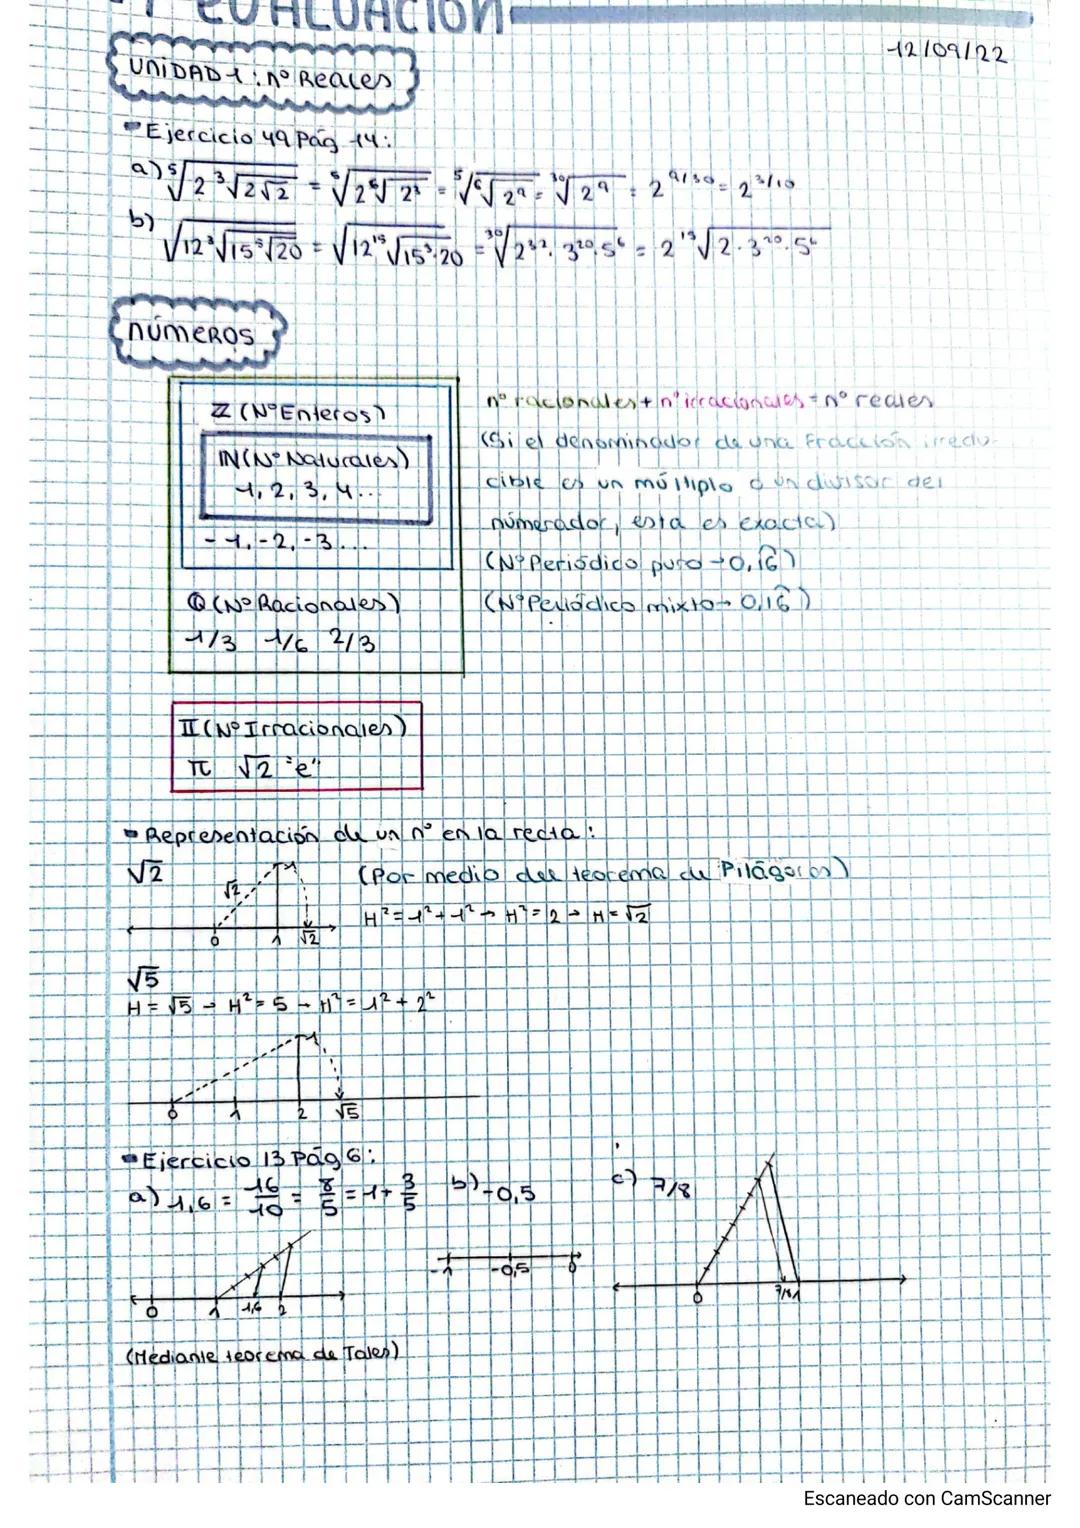 1ª EVALUACIÓN
12/09/22
UNIDAD 1: nº Reales
Ejercicio 49 Pág 14:
a) ⁵√(2 ³√(2√2)) = ⁵√(2 ⁶√(2³)) = ⁵√(⁶√(2⁹)) = ³⁰√(2⁹) = 2^(9/30) = 2^(3/10)
b) √(12 ³√(15 ⁵√20)) = √(12 ¹⁵√(15⁵·20)) = ³⁰√(2³²·3²⁰·5⁶) = 2 ¹⁵√(2·3²⁰·5⁶)
números
ℤ (Nº Enteros)
ℕ (Nº Naturales)
1, 2, 3, 4...
-1, -2, -3...
ℚ (Nº Racionales)
1/3 1/6 2/3
nº racionales + nº irracionales = nº reales
(Si el denominador de una Fracción irredu-
cible es un múltiplo o un divisor del
númerador, esta es exacta)
(Nº Periódico puro → 0,1͡6)
(Nº Periódico mixto → 0,16̑)
𝕀 (Nº Irracionales)
π √2 "e"
Representación de un nº en la recta:
√2
(Por medio del teorema de Pitágoras)
√2 1
H² = 1² + 1² → H² = 2 → H = √2
0 1 √2
√5
H = √5 → H² = 5 → H² = 1² + 2²
1
0 1 2 √5
Ejercicio 13 Pág 6:
a) 1,6 = 16/10 = 8/5 = 1 + 3/5 b) -0,5 c) 7/8
-1 -0,5 0
0 1 1,6 2
0 7/8 1
(Mediante teorema de Tales)
Escaneado con CamScanner